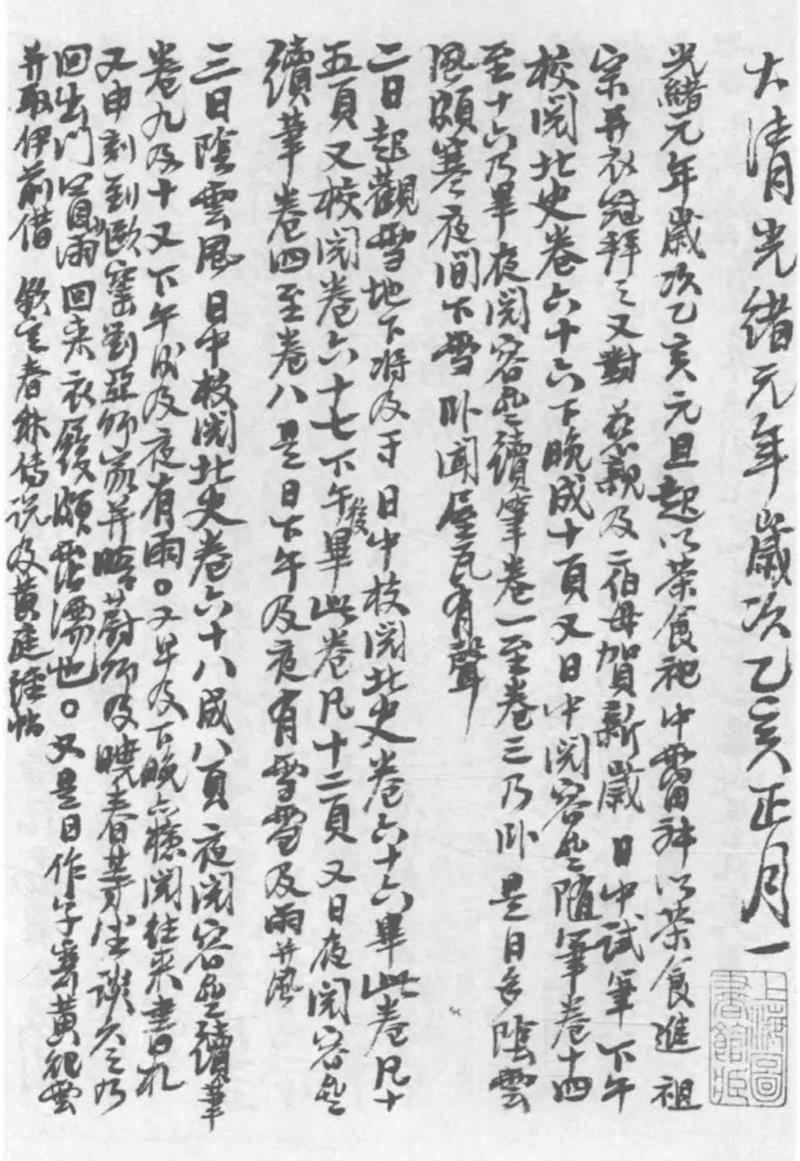 大清光緒元年歲次乙亥正月一
光緒元年歲次乙亥元旦起以茶食祀中霤神以茶食進祖
宗并衣冠拜之又對慈親及二伯母賀新歲日中試筆下午
校閱北史卷六十六下晚成十頁又日中閱容齋隨筆卷十四
至十六乃畢夜閱容齋續筆卷一至卷三乃卧是日多陰雲
風頗寒夜間下雪卧聞屋瓦有聲
二日起觀雪地下將及寸日中校閱北史卷六十六畢此卷凡十
五頁又校閱卷六十七下午後畢此卷凡十二頁又日夜閱容齋
續筆卷四至卷八是日下午及夜有雪雪及雨并風
三日陰雲風日中校閱北史卷六十八成八頁夜閱容齋續筆
卷九及十又下午後及夜有雨。又早及下晚亦檢閱往來書札
又申刻到甌窰劉亞卿家并晤蔚卿及曉春等坐談久之乃
回出門冒雨回來衣履頗霑濡也。又是日作字寄黃祀雲
并取伊前借欽定春秋傳說及黃庭經帖
上海圖書館藏